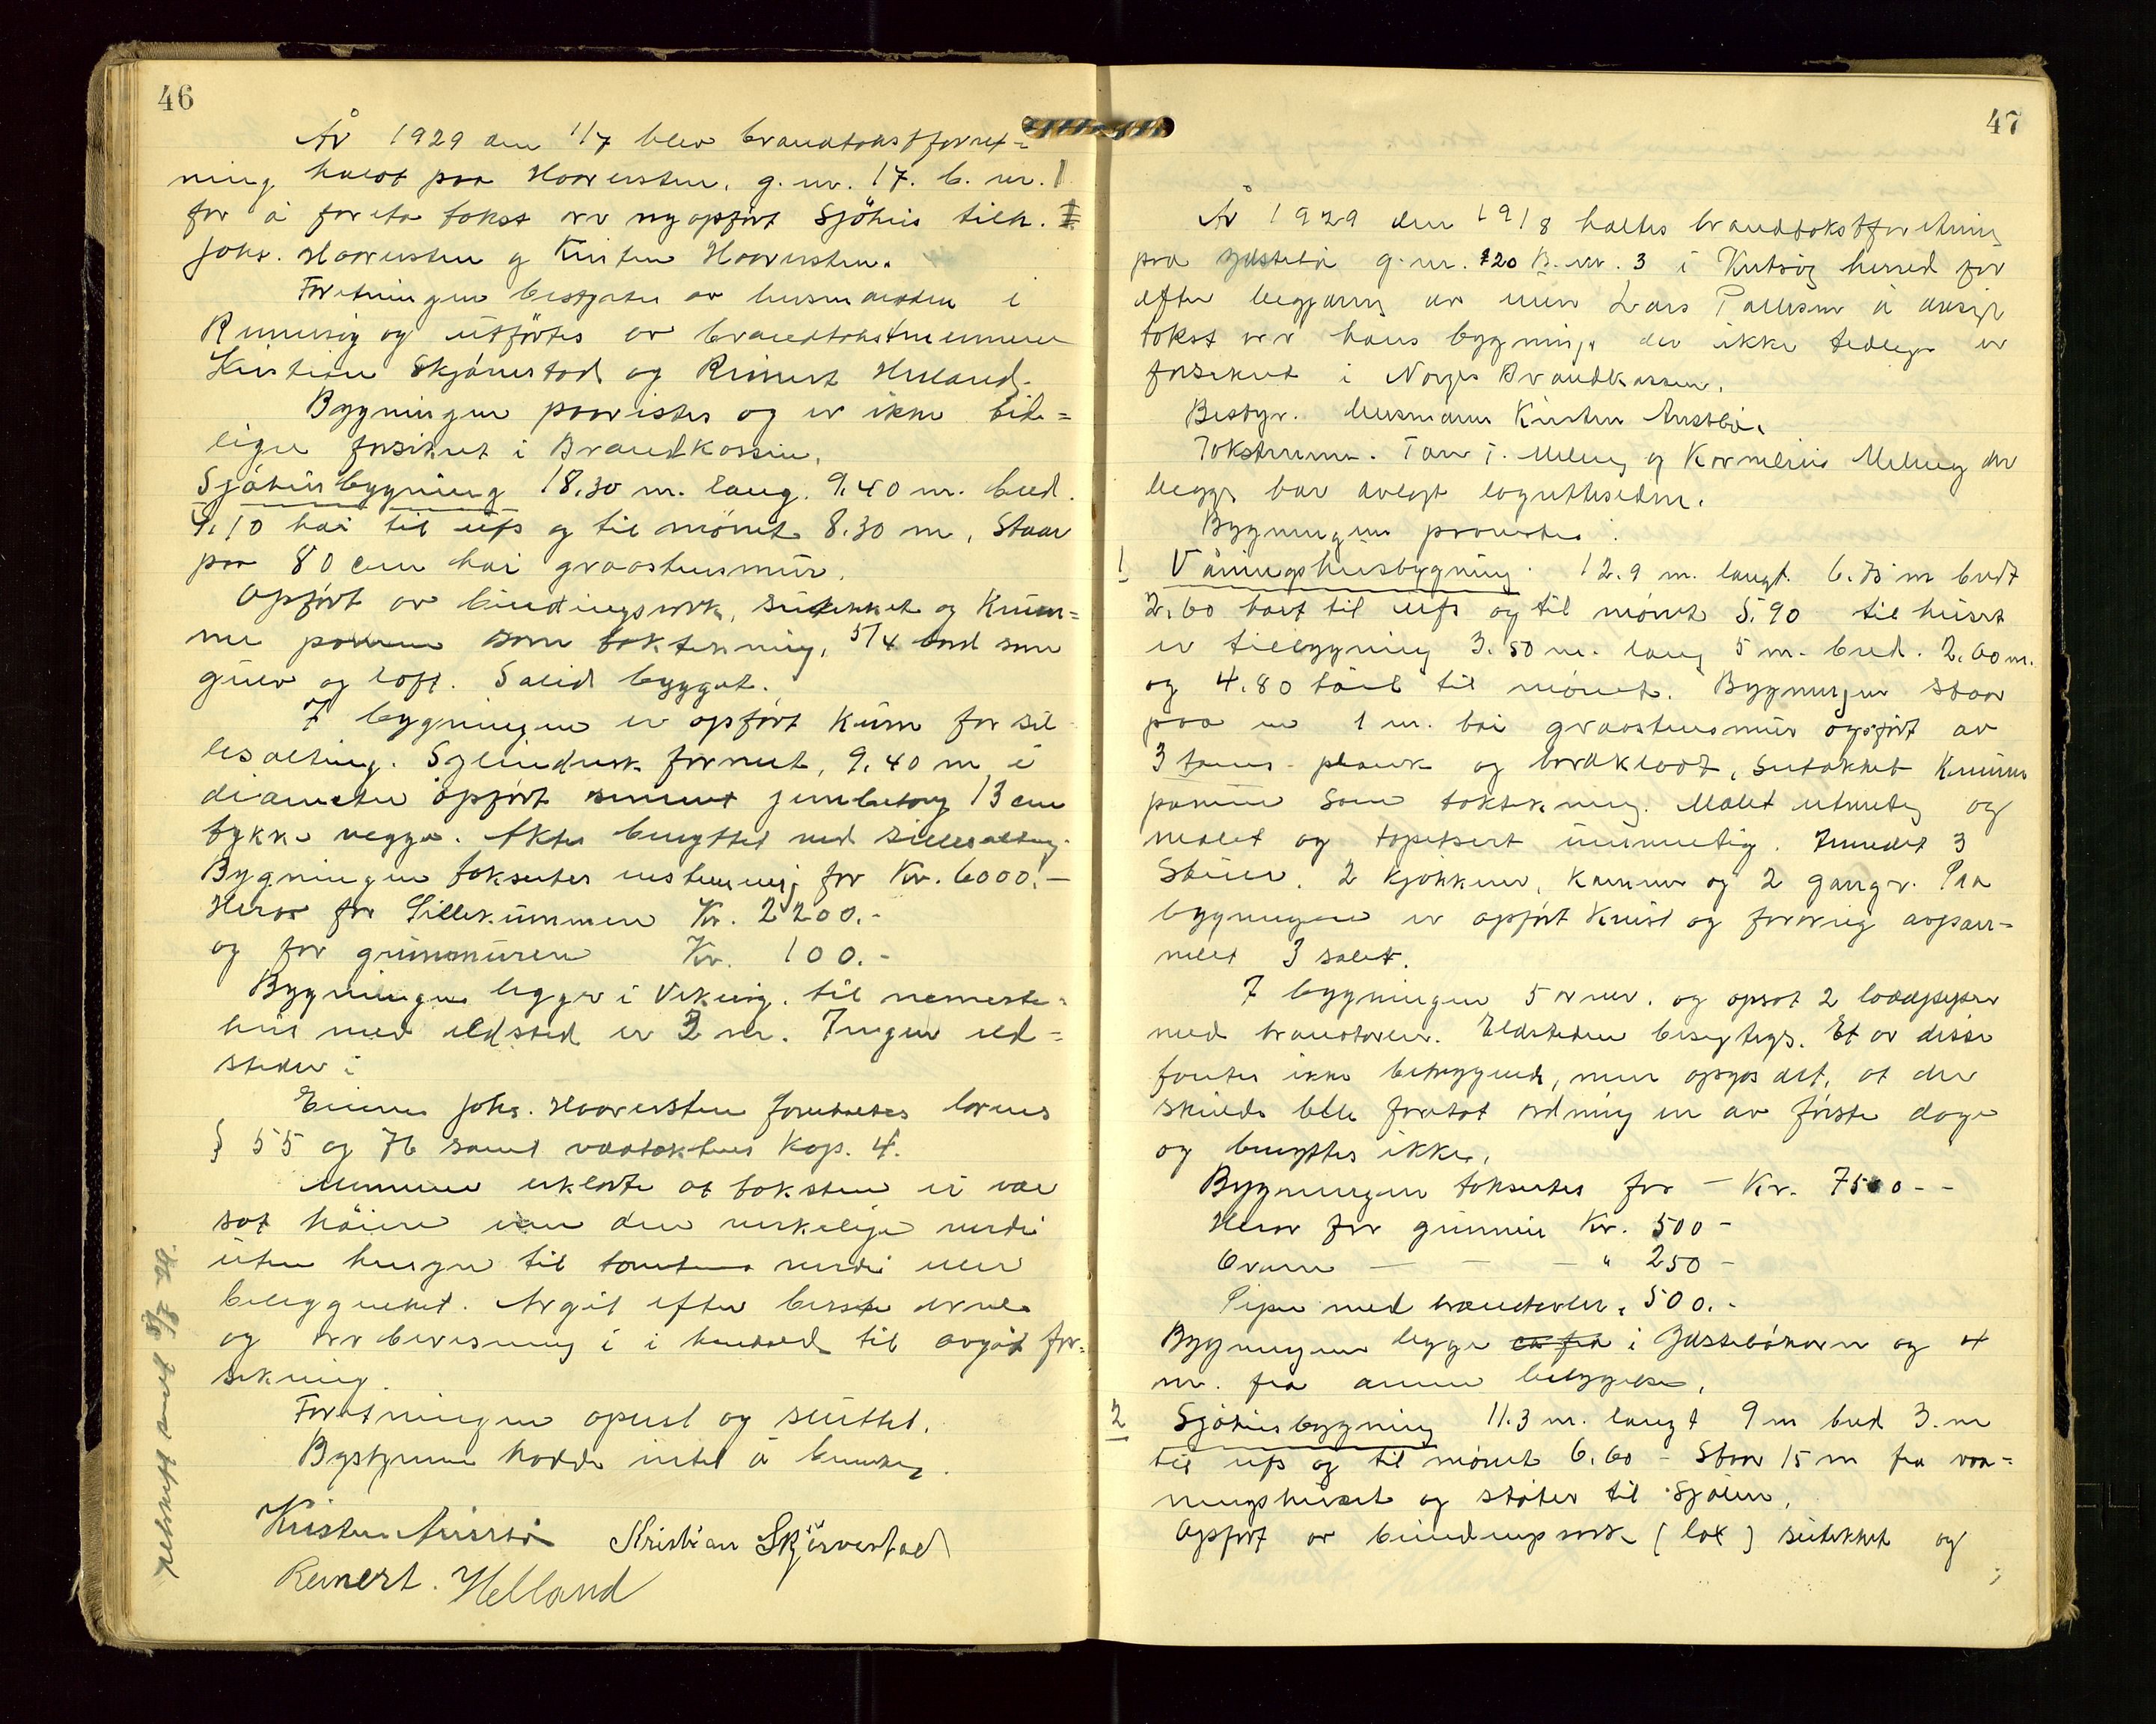 46
År 1929 den 1/7 blev brandtakstforret=
ning holdt paa Haaversten, g. nr. 17. b. nr. 1
for å foreta takst av nyopført Sjöhus tilh.
Johs. Haaversten og Kristen Haaversten.
Forretningen bestyrtes av lensmanden i
Rennesøy og utförtes av brandtakstmennene
Kristian Skjörvestad og Reinert Helland.
Bygningen paavistes og er ikke tid=
ligere forsikret i Brandkassen.
Sjöhusbygning 18.30 m. lang. 9.40 m. bred.
4.10 høi til ufs og til mønet 8.30 m, Staar
paa 80 cm høi graastensmur.
Opfört av bindingsverk, sutekket og Krum=
me panner som taktekning, 5/4 bord som
gulv og loft. Solid bygget.
I bygningen er opfört Kum for sil-
lesalting. Sylindrisk formet, 9.40 m i
diameter opfört armert jernbetong 13 cm
tykke vegger. Aktes benyttet ved sillesalting.
Bygningen taksertes enstemmig for Kr. 6000.-
Herav for Sillekummen Kr. 2200.-
og for grunnmuren Kr. 100.-
Bygningen ligger i Vikevåg. til nærmeste
hus med ildsted er 3 m. Ingen ild=
steder i
Eieren Johs. Haaversten foreholdtes lovens
§ 55 og 76 samt vedtektenes Kap. 4.
Mennene erklærte at taksten ei var
sat høiere enn den virkelige verdi
uten hensyn til tomtens verdi eller
beliggenhet. Avgit efter beste evne
og overbevisning i i henhold til avgit for=
sikring.
Forretningen oplest og sluttet.
Bestyreren hadde intet å bemerke.
Kristen Austbø Kristian Skjörvestad
Reinert. Helland
Utskrift sendt 5/8 29.
47
År 1929 den 19/8 holdtes brandtakstforretning
paa Jústebö g. nr. 20 B. nr. 3 i Kvitsöy herred for
efter begjæring av eier Lars Paulsen å avgi
takst over hans bygninger der ikke tidligere er
forsikret i Norges Brandkasse.
Bestyr. lensmann Kristen Austbö.
Takstmenn. Tore T. Meling og Kornelius Meling der
begge har avlagt lagretteseden.
Bygningene paavistes:
1 Våningshusbygning. 12.9 m. langt. 6.75 m bredt
2.60 høit til ufs og til mönet 5.90 til huset
er tilbygning 3.50 m. lang 5 m. bred. 2.60 m.
og 4.80 höit til mönet. Bygningen staar
paa en 1 m. høi graastensmur opfört av
3 toms. plank og bordklædt, sutekket Krumme
panner som taktekning. Malet utvendig og
malet og tapetsert innvendig. Inredet 3
Stuer, 2 kjökkener, kammer og 2 ganger. Paa
bygningen er opfört Kvist og forövrig avpan-
nelet 3 saler.
I bygningen 5 ovner. og opsat 2 loddpiper
med brandtavler. Ildstedene besigtiges. Et av disse
fantes ikke betryggende, men opgas det, at der
skulde bli foretat ordning en av förste dage
og benyttes ikke.
Bygningen taksertes for - Kr. 7500 - -
Herav for grunmur Kr. 500 -
Ovner - - - " 250 -
Piper med brandtavler " 500.-
Bygningen ligger ca fra i Justeböhavn og 4
m. fra annen bebyggelse.
2 Sjöhusbygning 11.3 m. langt 9 m bred 3. m
til ufs og til mønet 6.60 - Staar 15 m fra vaa=
ningshuset og stöter til Sjöen.
Opfört av bindingsverk (laft) sutekket og